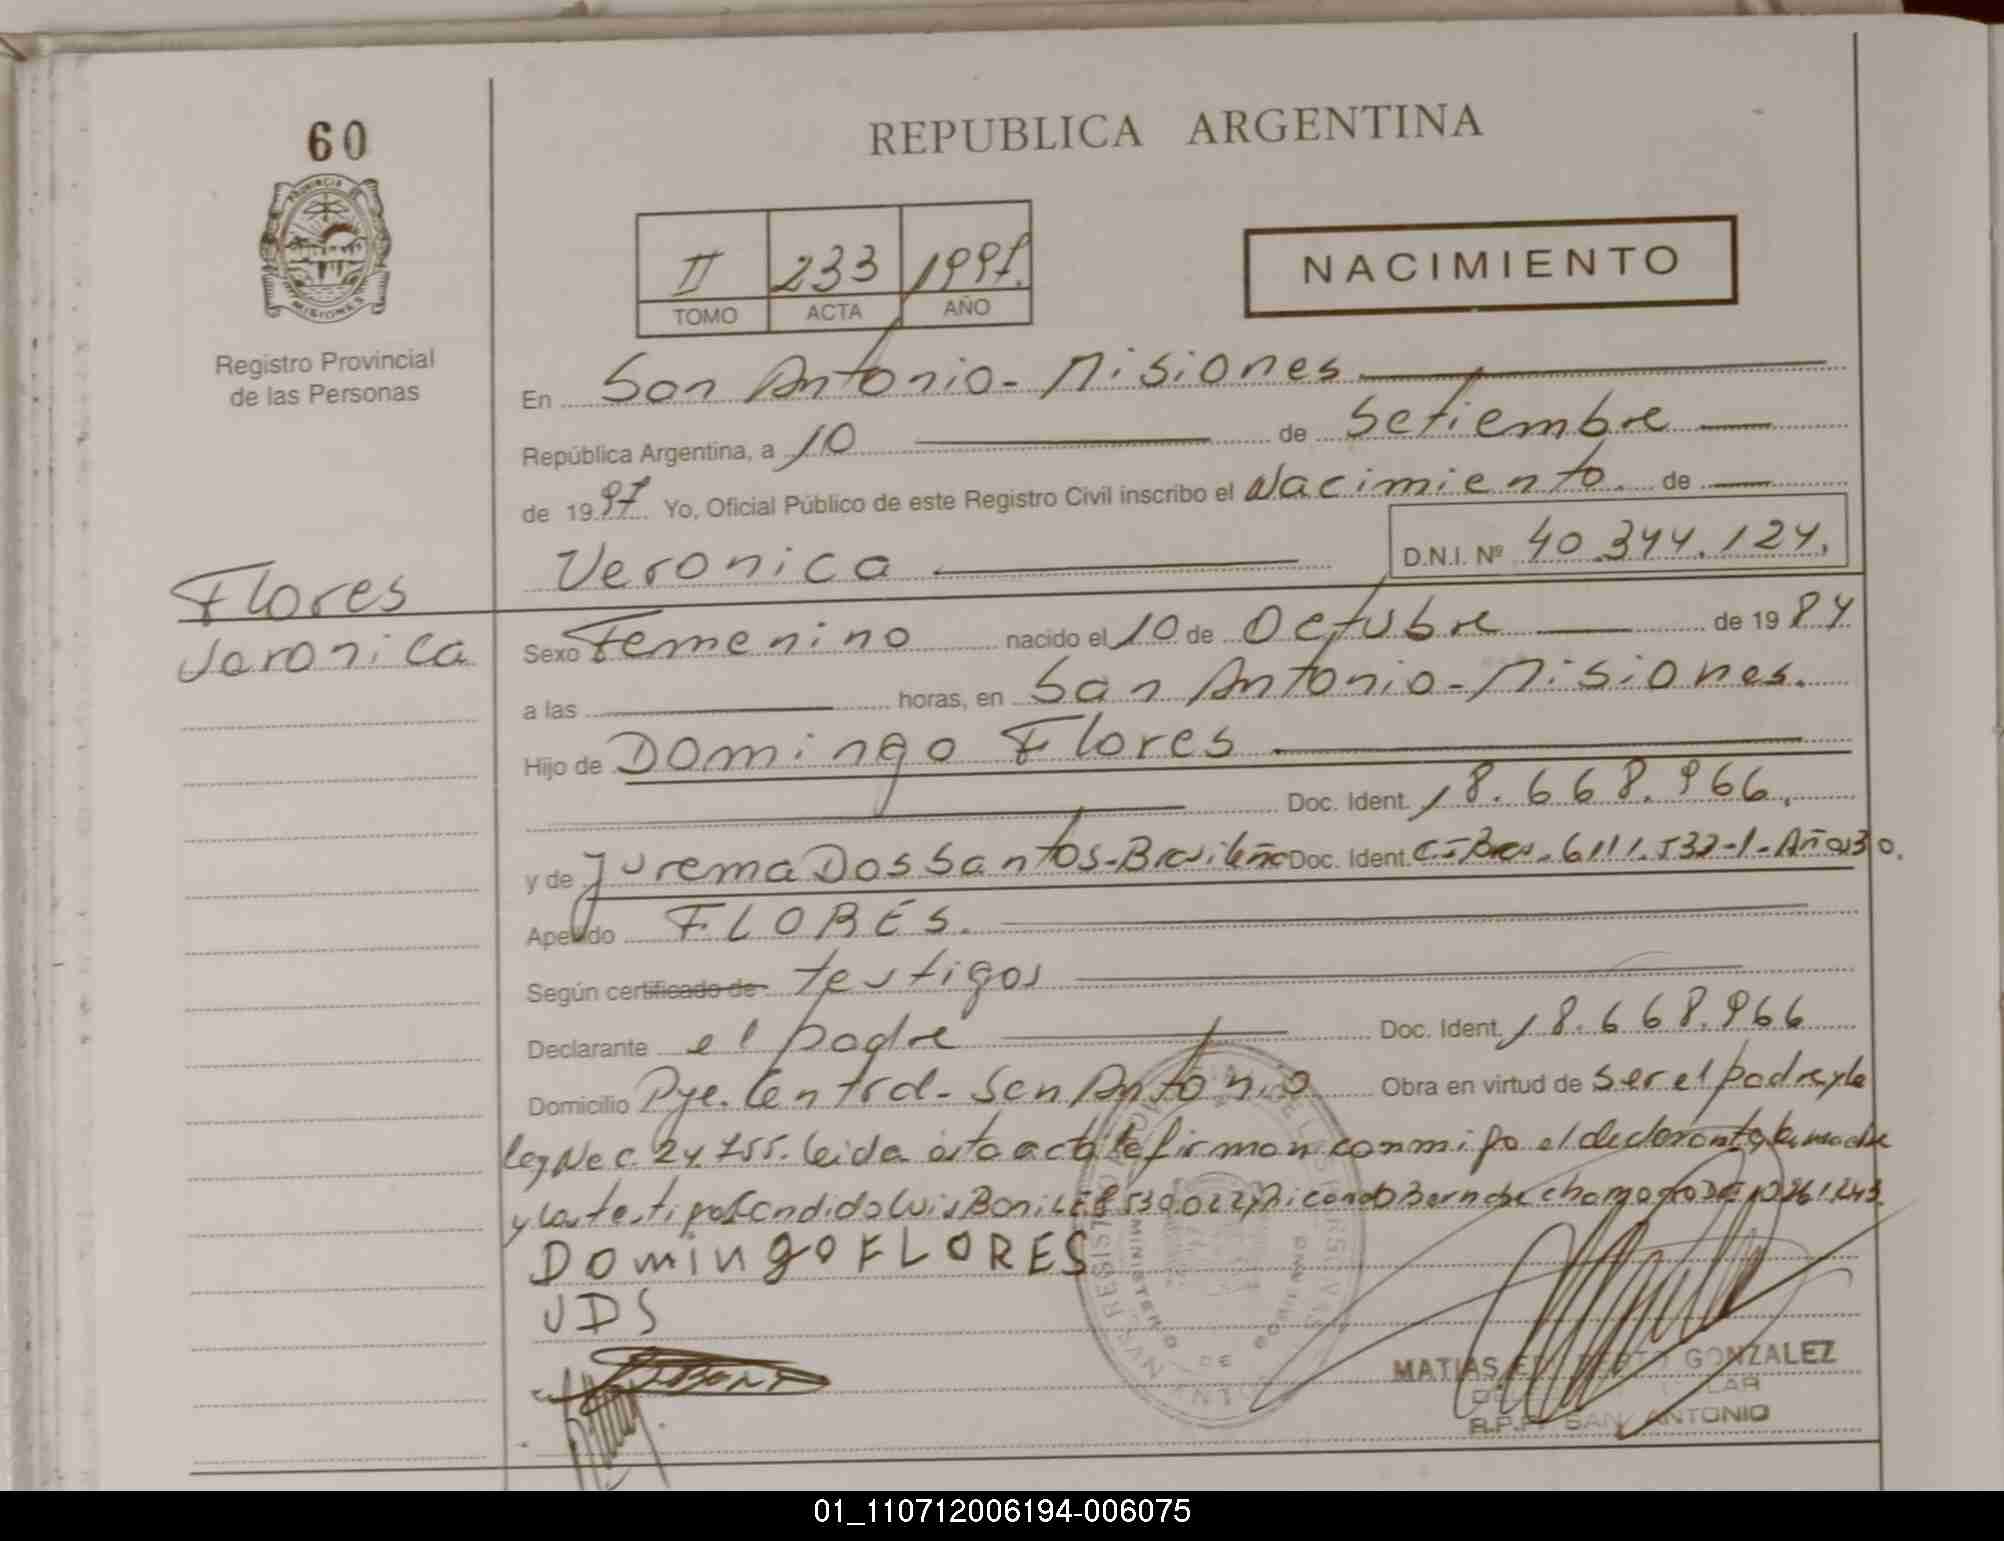 60
REPUBLICA ARGENTINA
PROVINCIA DE MISIONES
Registro Provincial
de las Personas
II 233 1997.
TOMO ACTA AÑO
NACIMIENTO
En San Antonio - Misiones
República Argentina, a 10 de Setiembre
de 1997 Yo, Oficial Público de este Registro Civil inscribo el Nacimiento. de
Veronica D.N.I. Nº 40.344.124.
Flores
Veronica
Sexo Femenino nacido el 10 de Octubre de 1984
a las horas, en San Antonio - Misiones.
Hijo de Domingo Flores
Doc. Ident. 18.668.966.
y de Jurema Dos Santos - Brasileña Doc. Ident. 6111.532-1-
Apellido FLORES.
Según certificado de testigos
Declarante el padre Doc. Ident. 18.668.966
Domicilio Pje. Central - San Antonio Obra en virtud de ser el padre y la
ley Nac. 24.755. Leida esta acta le firman conmigo el declarante la madre
y los testigos Candido Luis Boni
DomingoFLORES
JDS
MINISTERIO DE
MATIAS GONZALEZ
R.P.P. SAN ANTONIO
01_110712006194-006075